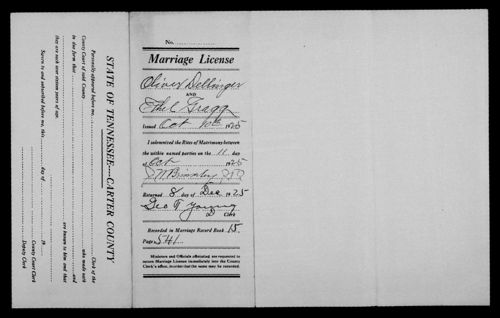 No.
Marriage License
Oliver Dellinger
AND
Ethel Gragg
Issued Oct 10th 1925
I solemnized the Rites of Matrimony between
the within named parties on the 11 day
of Oct 1925
Returned 8 day of Dec 1925
Geo T Young
D Clerk
Recorded in Marriage Record Book 15
Page 541
Ministers and Officials officiating are requested to
return Marriage License immediately into the County
Clerk's office, in order that the same may be recorded.
STATE OF TENNESSEE—CARTER COUNTY
Personally appeared before me, Clerk of the
County Court of said County who made oath
in due form that and
are known to him and that
they are each over sixteen years of age.
Sworn to and subscribed before me, this day of 19
County Court Clerk
Deputy Clerk